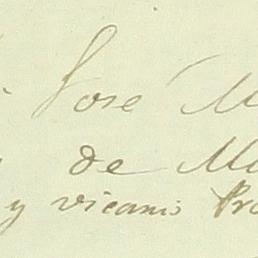 José M
de Mo
y vicario Pro